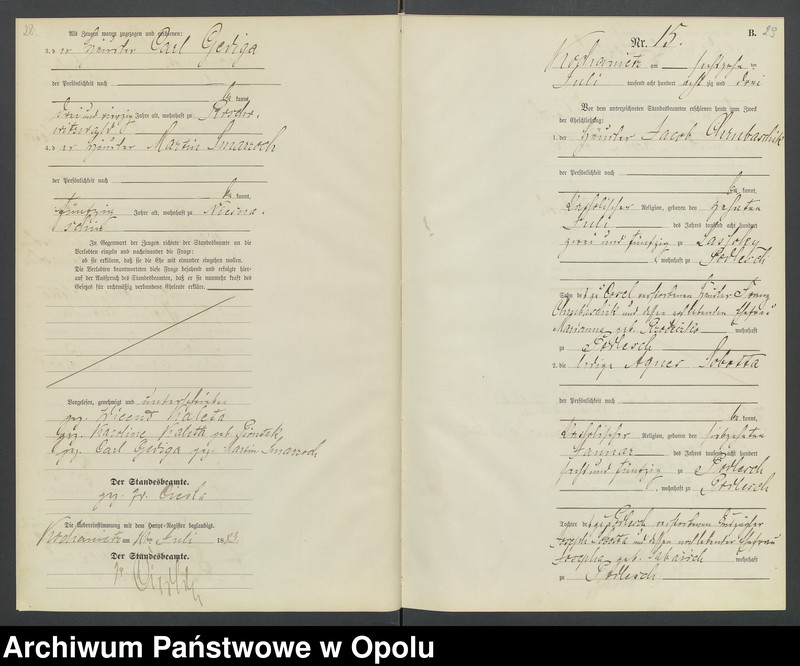 28.
Als Zeugen waren zugezogen und erschienen:
3. der Häusler Carl Gediga
der Persönlichkeit nach
be kannt,
drei und vierzig Jahre alt, wohnhaft zu
4. der Häusler Martin
der Persönlichkeit nach
be kannt,
fünfzig Jahre alt, wohnhaft zu
In Gegenwart der Zeugen richtete der Standesbeamte an die
Verlobten einzeln und nacheinander die Frage:
ob sie erklären, daß sie die Ehe mit einander eingehen wollen.
Die Verlobten beantworteten diese Frage bejahend und erfolgte hier-
auf der Ausspruch des Standesbeamten, daß er sie nunmehr kraft des
Gesetzes für rechtmäßig verbundene Eheleute erkläre.
Vorgelesen, genehmigt und unterschrieben
gez. Vicend Kaleta
gez. Karoline Kaleta geb.
gez. Carl Gediga gez. Martin
Der Standesbeamte.
gez. Fr. Ciesla
Die Uebereinstimmung mit dem Haupt-Register beglaubigt.
Kochanietz am 16. Juli 1883.
Der Standesbeamte.
Fr. Ciesla
B. 29
Nr. 15.
Kochanietz am sechszehn ten
Juli tausend acht hundert acht zig und drei
Vor dem unterzeichneten Standesbeamten erschienen heute zum Zweck
der Eheschließung:
1. der Häusler Jacob Chmbaschik
der Persönlichkeit nach
be kannt,
katholischer Religion, geboren den zehnten
Juli des Jahres tausend acht hundert
zwei und fünfzig zu
wohnhaft zu Podlesch
Sohn des zu verstorbenen Häusler Franz
Chmbaschik und dessen nochlebenden Ehefrau
Marianna geb. wohnhaft
zu Podlesch
2. die ledige Agnes Sobotta
der Persönlichkeit nach
be kannt,
katholischer Religion, geboren den siebzehnten
Januar des Jahres tausend acht hundert
sechs und fünfzig zu Podlesch
, wohnhaft zu Podlesch
Tochter des zu Podlesch verstorbenen Auszügler
Joseph Sobotta und dessen nochlebender Ehefrau
Josepha geb. wohnhaft
zu Podlesch
Archiwum Państwowe w Opolu